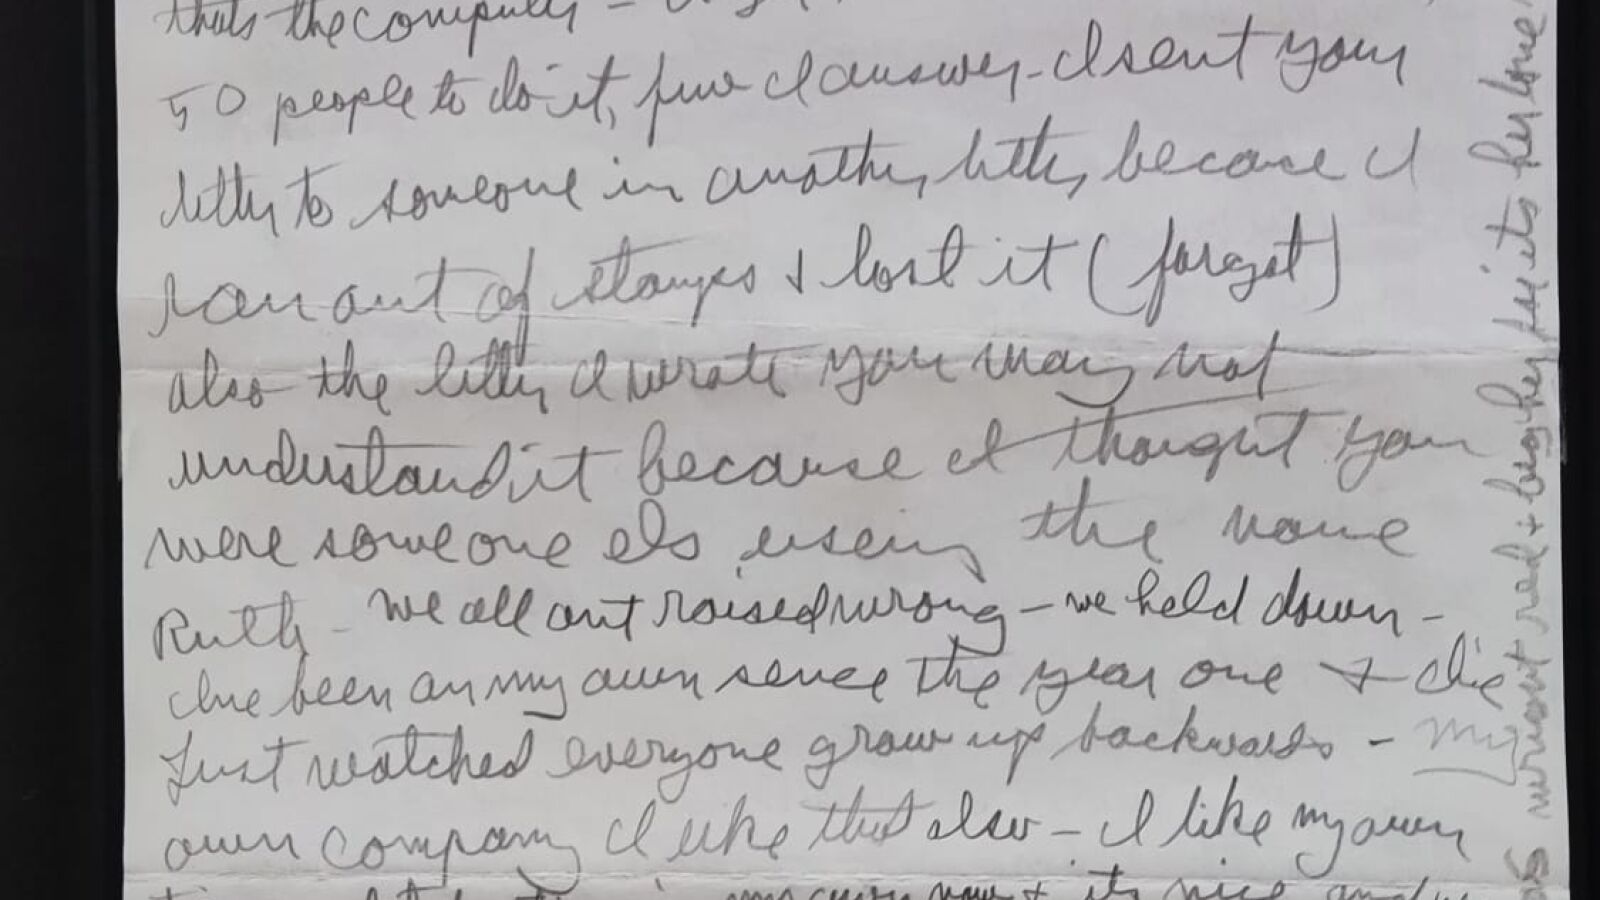 thats the computer -
50 people to do it, few I answer - I sent your
letter to someone in another letter because I
ran out of stamps & lost it (forgot)
also the letter I wrote you may not
understand it because I thought you
were someone els useing the name
Ruth - we all ant raised wrong - we held down -
Ive been on my own sence the year one & Ive
Just watched everyone grow up backwards - My
own company I like that also - I like my own
my own now & its nice